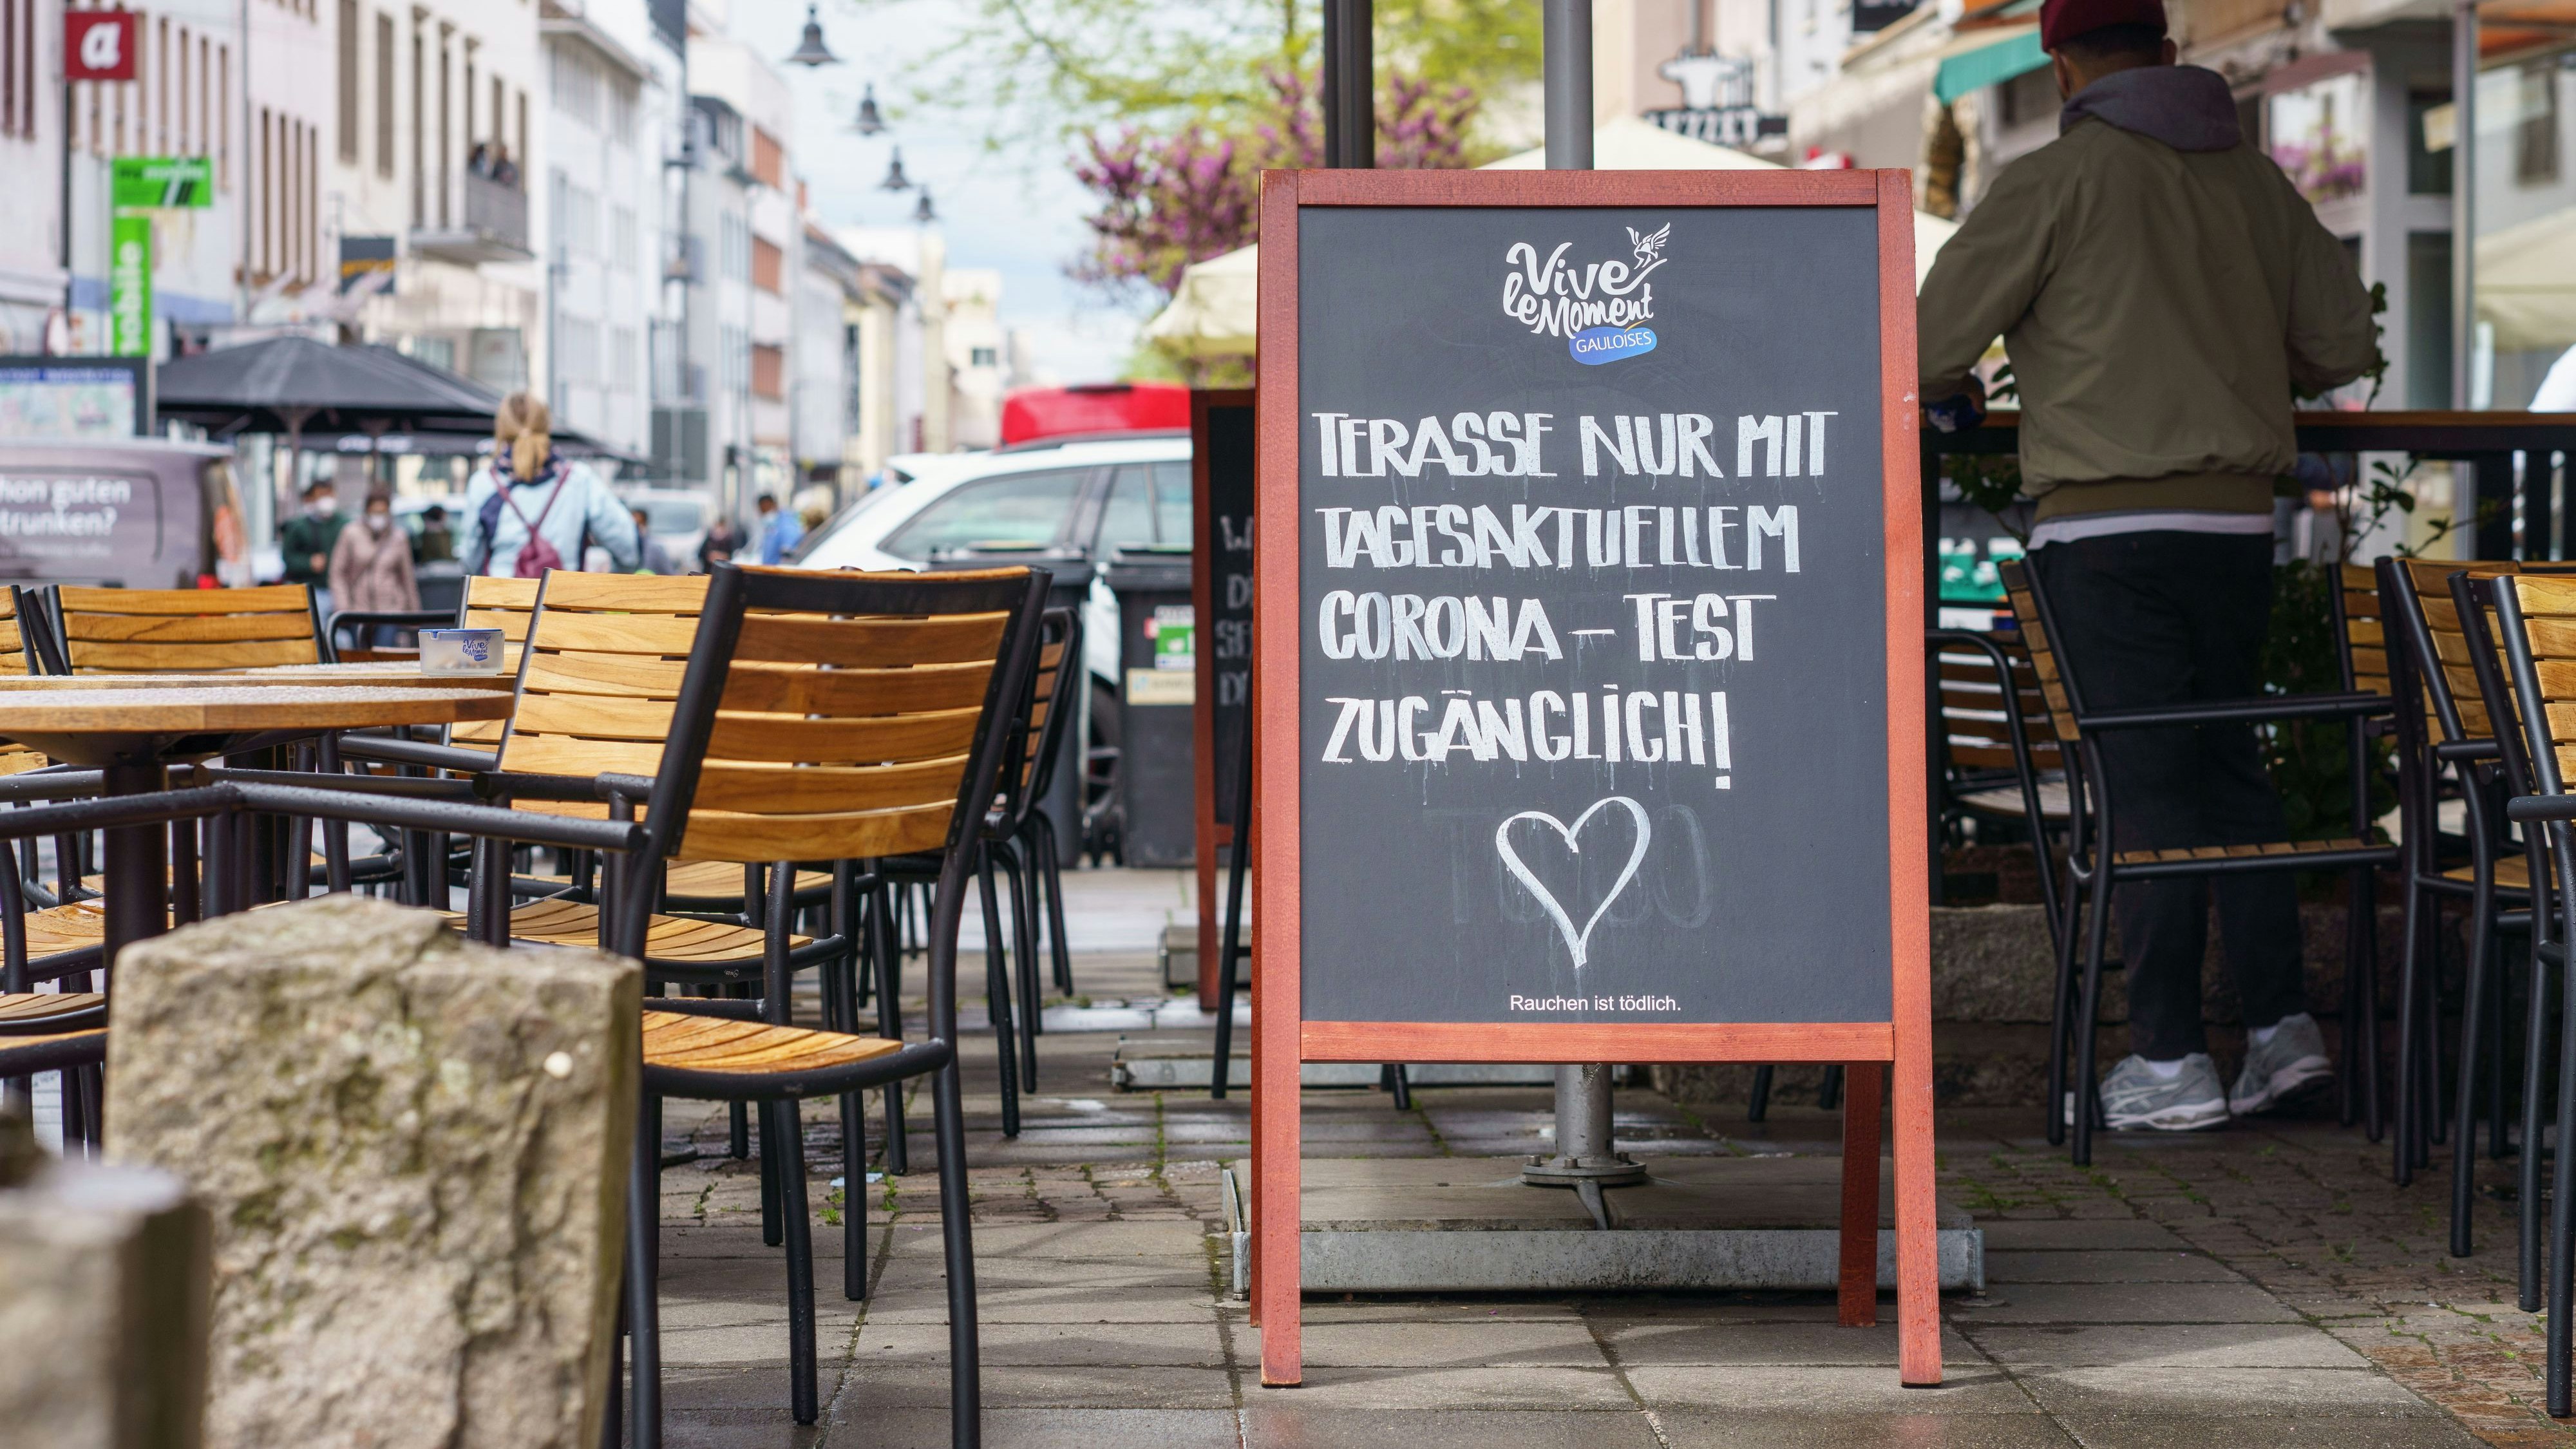 Vive
le Moment
GAULOISES
TERASSE NUR MIT
TAGESAKTUELLEM
CORONA – TEST
ZUGÄNGLICH!
Rauchen ist tödlich.
a
mobile
guten
trunken?
Vive
le Moment